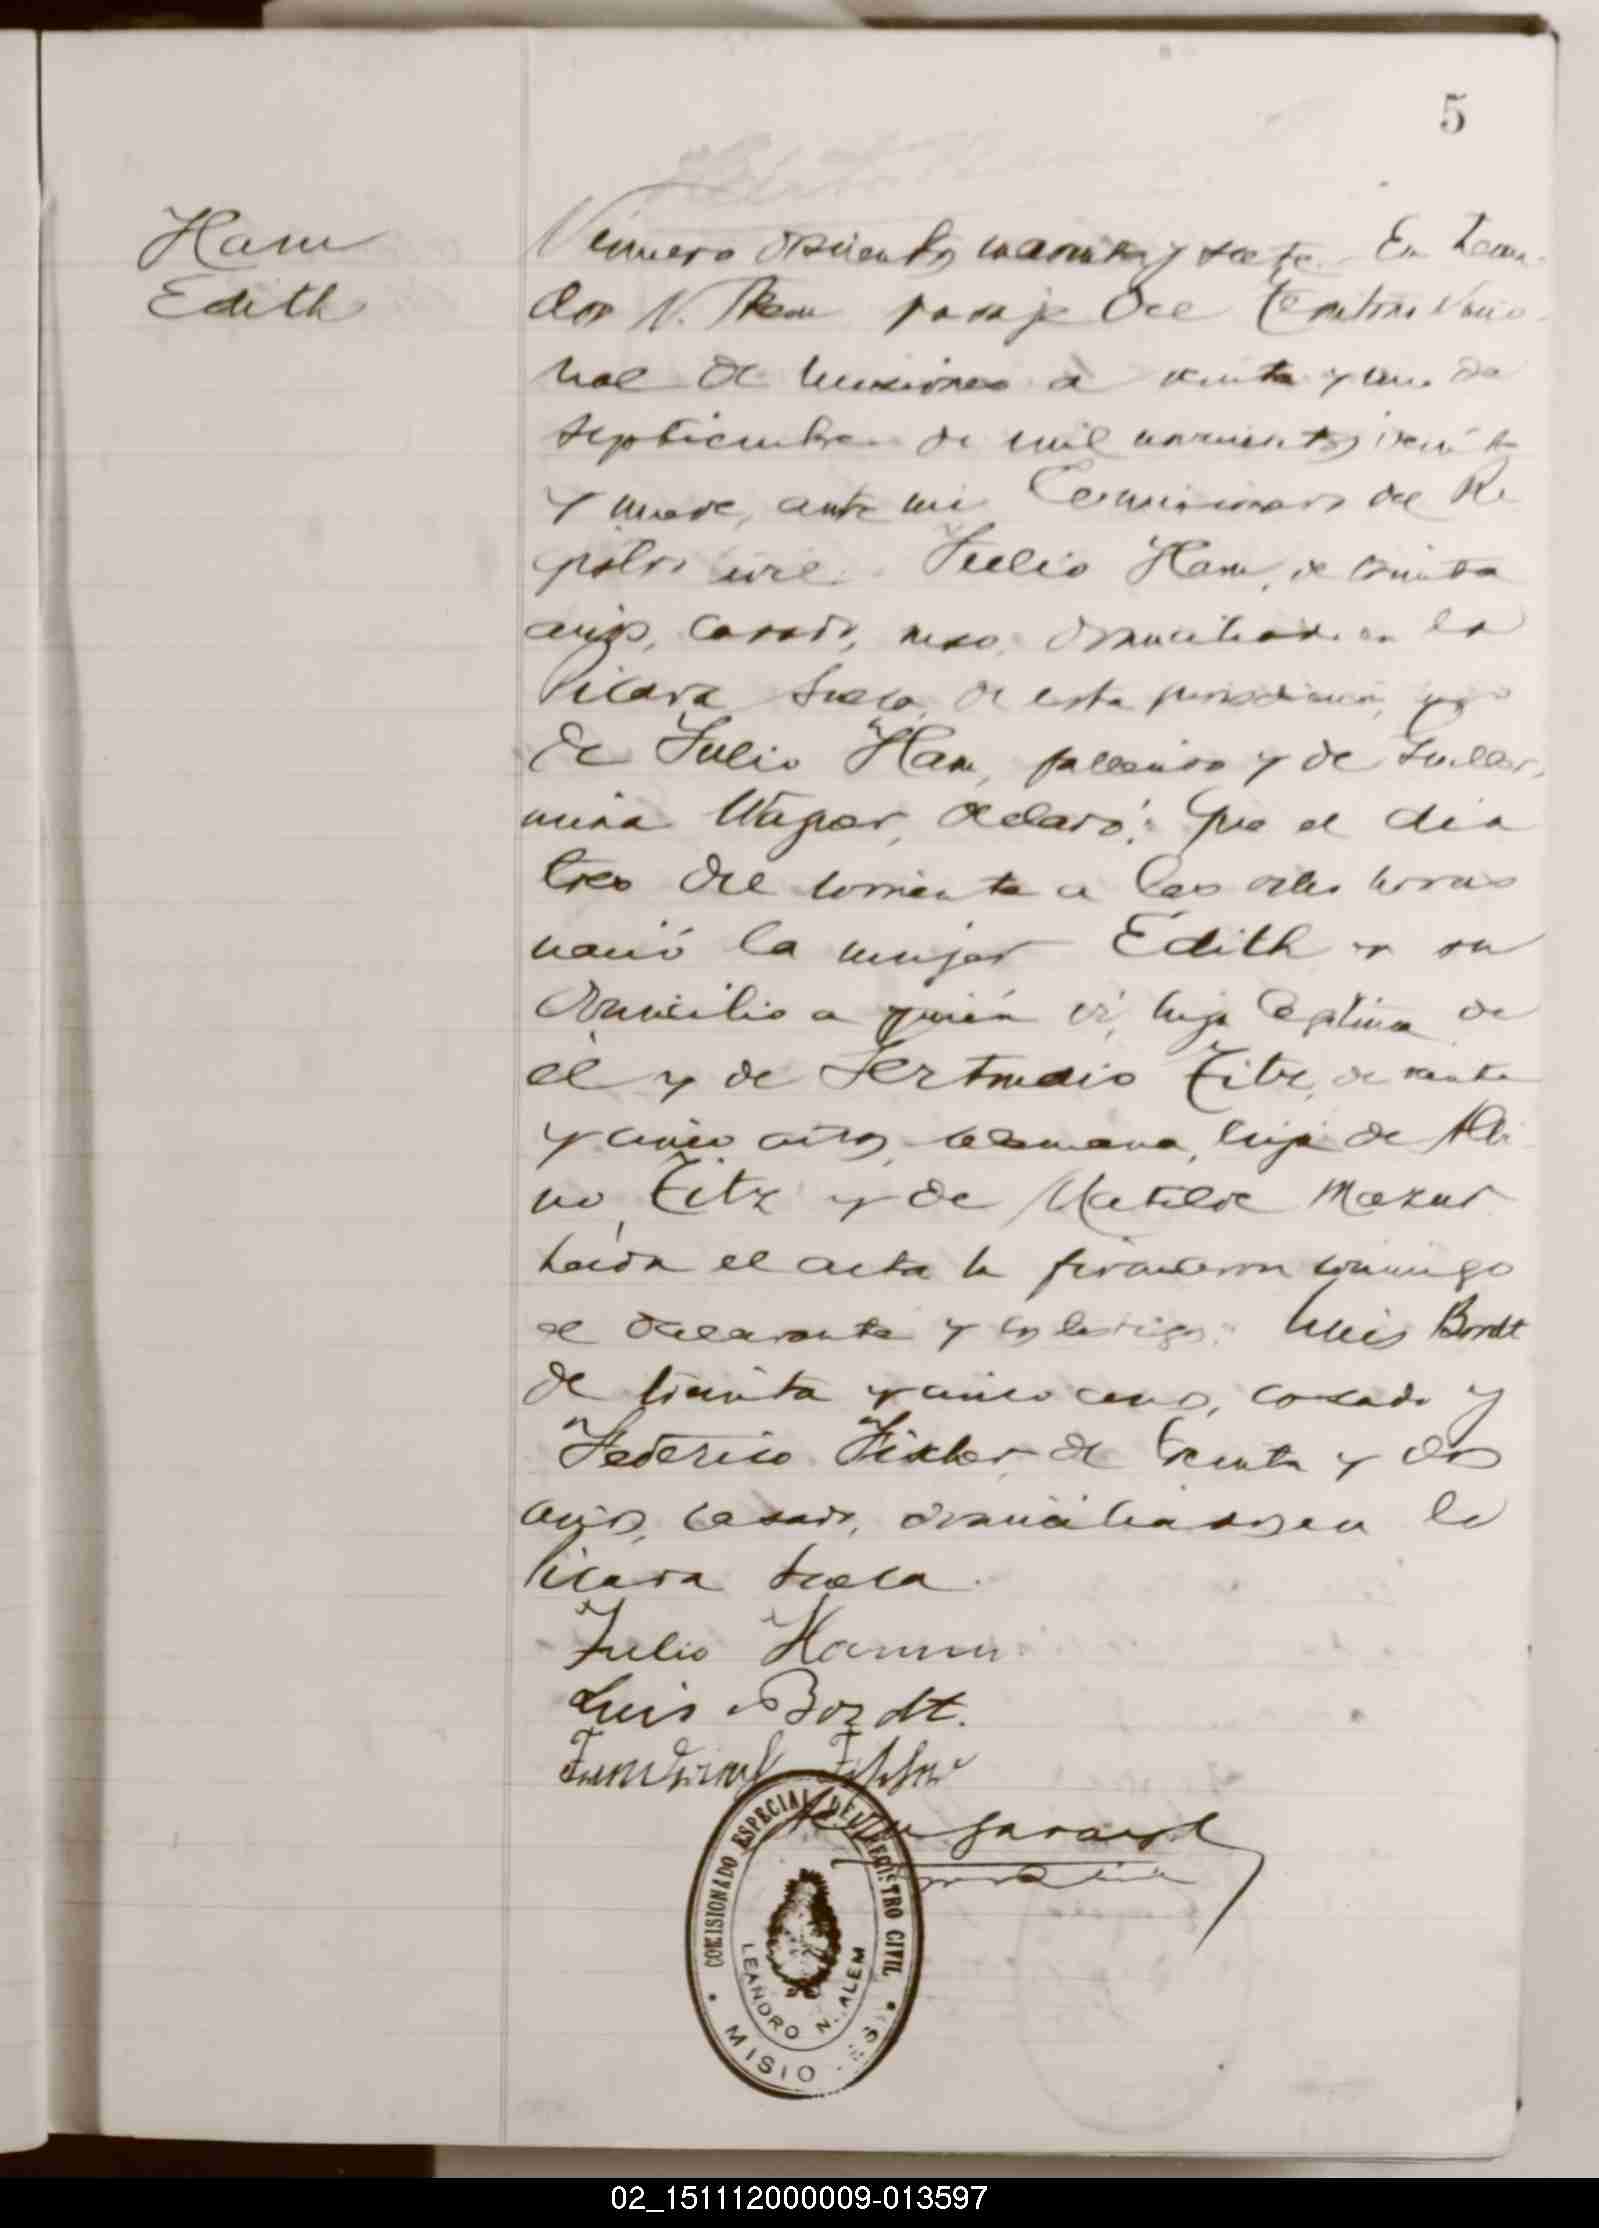 5
Ham
Edith
Número doscientos cuarenta y siete. En Lean-
dro N. Alem paraje del Territorio Nacio-
nal de Misiones a veinte y uno de
septiembre de mil novecientos veinte
y nueve, ante mi Comisionado del Re
gistro civil Julio Ham, de treinta
años, casado, ruso, domiciliado en la
Picada Sueca, de esta jurisdicción, hijo
de Julio Ham, fallecido y de Guiller-
mina Wagner, declaró: Que el dia
tres del corriente a las ocho horas
nació la mujer Edith en su
domicilio a quién vi, hija legítima de
él y de Gertrudis Titz, de veinte
y cinco años, alemana, hija de Albi-
no Titz y de Matilde Mazur
Leida el acta la firmaron conmigo
el declarante y los testigos: Luis Bordt
de treinta y cinco años, casado y
Federico Fixler de treinta y dos
años, casado, domiciliados en la
Picada Sueca.
Julio Hamm
Luis Bordt.
COMISIONADO ESPECIAL DEL REGISTRO CIVIL
LEANDRO N. ALEM
MISIONES
02_151112000009-013597